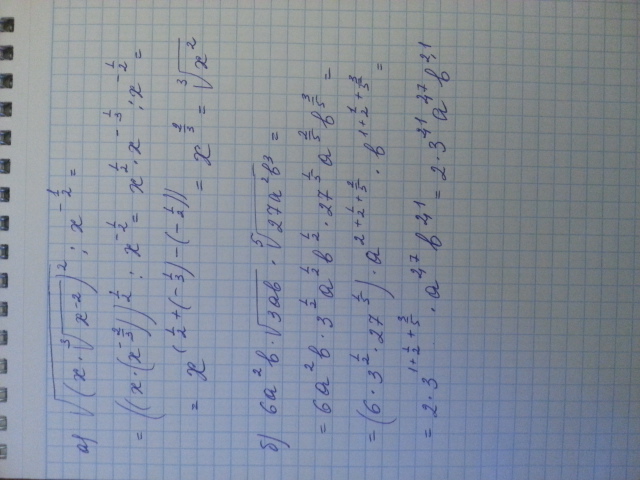 а) √(x·∛(x⁻²))² : x^(-1/2) =
= ((x·(x^(-2/3)))^(1/2) : x^(-1/2) = x^(1/2)·x^(-1/3) : x^(-1/2) =
= x^(1/2+(-1/3)-(-1/2)) = x^(2/3) = ∛(x²)
б) 6a²b·√(3ab)·⁵√(27a²b³) =
= 6a²b·3^(1/2)a^(1/2)b^(1/2)·27^(1/5)a^(2/5)b^(3/5) =
= (6·3^(1/2)·27^(1/5))·a^(2+1/2+2/5)·b^(1+1/2+3/5) =
= 2·3^(1+1/2+3/5)·a^(2,9)b^(2,1) = 2·3^(2,1)a^(2,9)b^(2,1)